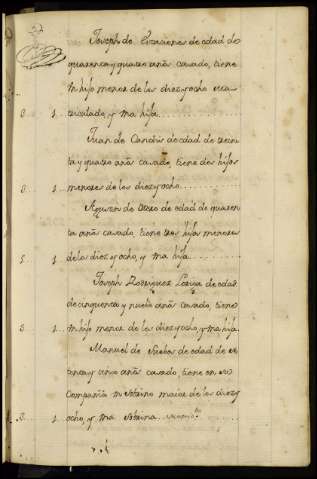 Joseph de de edad de
quarenta y quatro añs casado, tiene
un hijo menor de los diez y ocho
y una hija
3. 1.
Juan de de edad de trein
ta y quatro añs casado, tiene dos hijos
3. 1. menores de los diez y ocho
de edad de quaren
ta añs casado, tiene tres hijos menores
5. 1. de los diez y ocho, y una hija
Joseph Rodriguez de edad
de cinquenta y nuebe añs casado, tiene
3. 1. un hijo menor de los diez y ocho, y una hija
Manuel de de edad de
y añs casado, tiene en su
Compañia un sobrino maior de los diez y
3. 1. ocho, y una sobrina